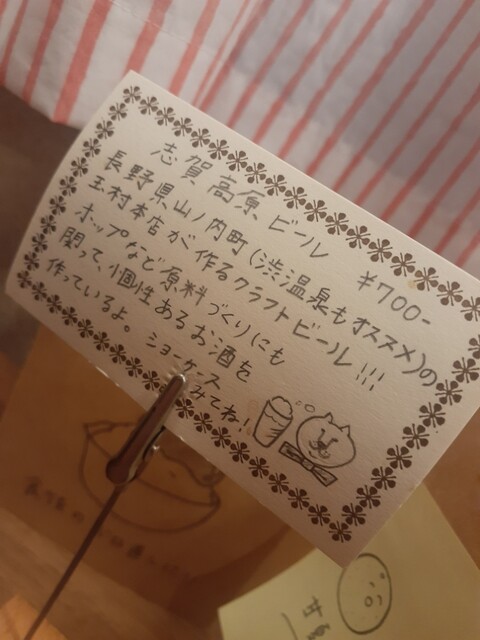 志賀高原ビール ¥700-
長野県山ノ内町(渋温泉もオススメ)の
玉村本店が作るクラフトビール!!!
ホップなど原料づくりにも
関って、個性あるお酒を
作っているよ。
ショーケース
みてね!